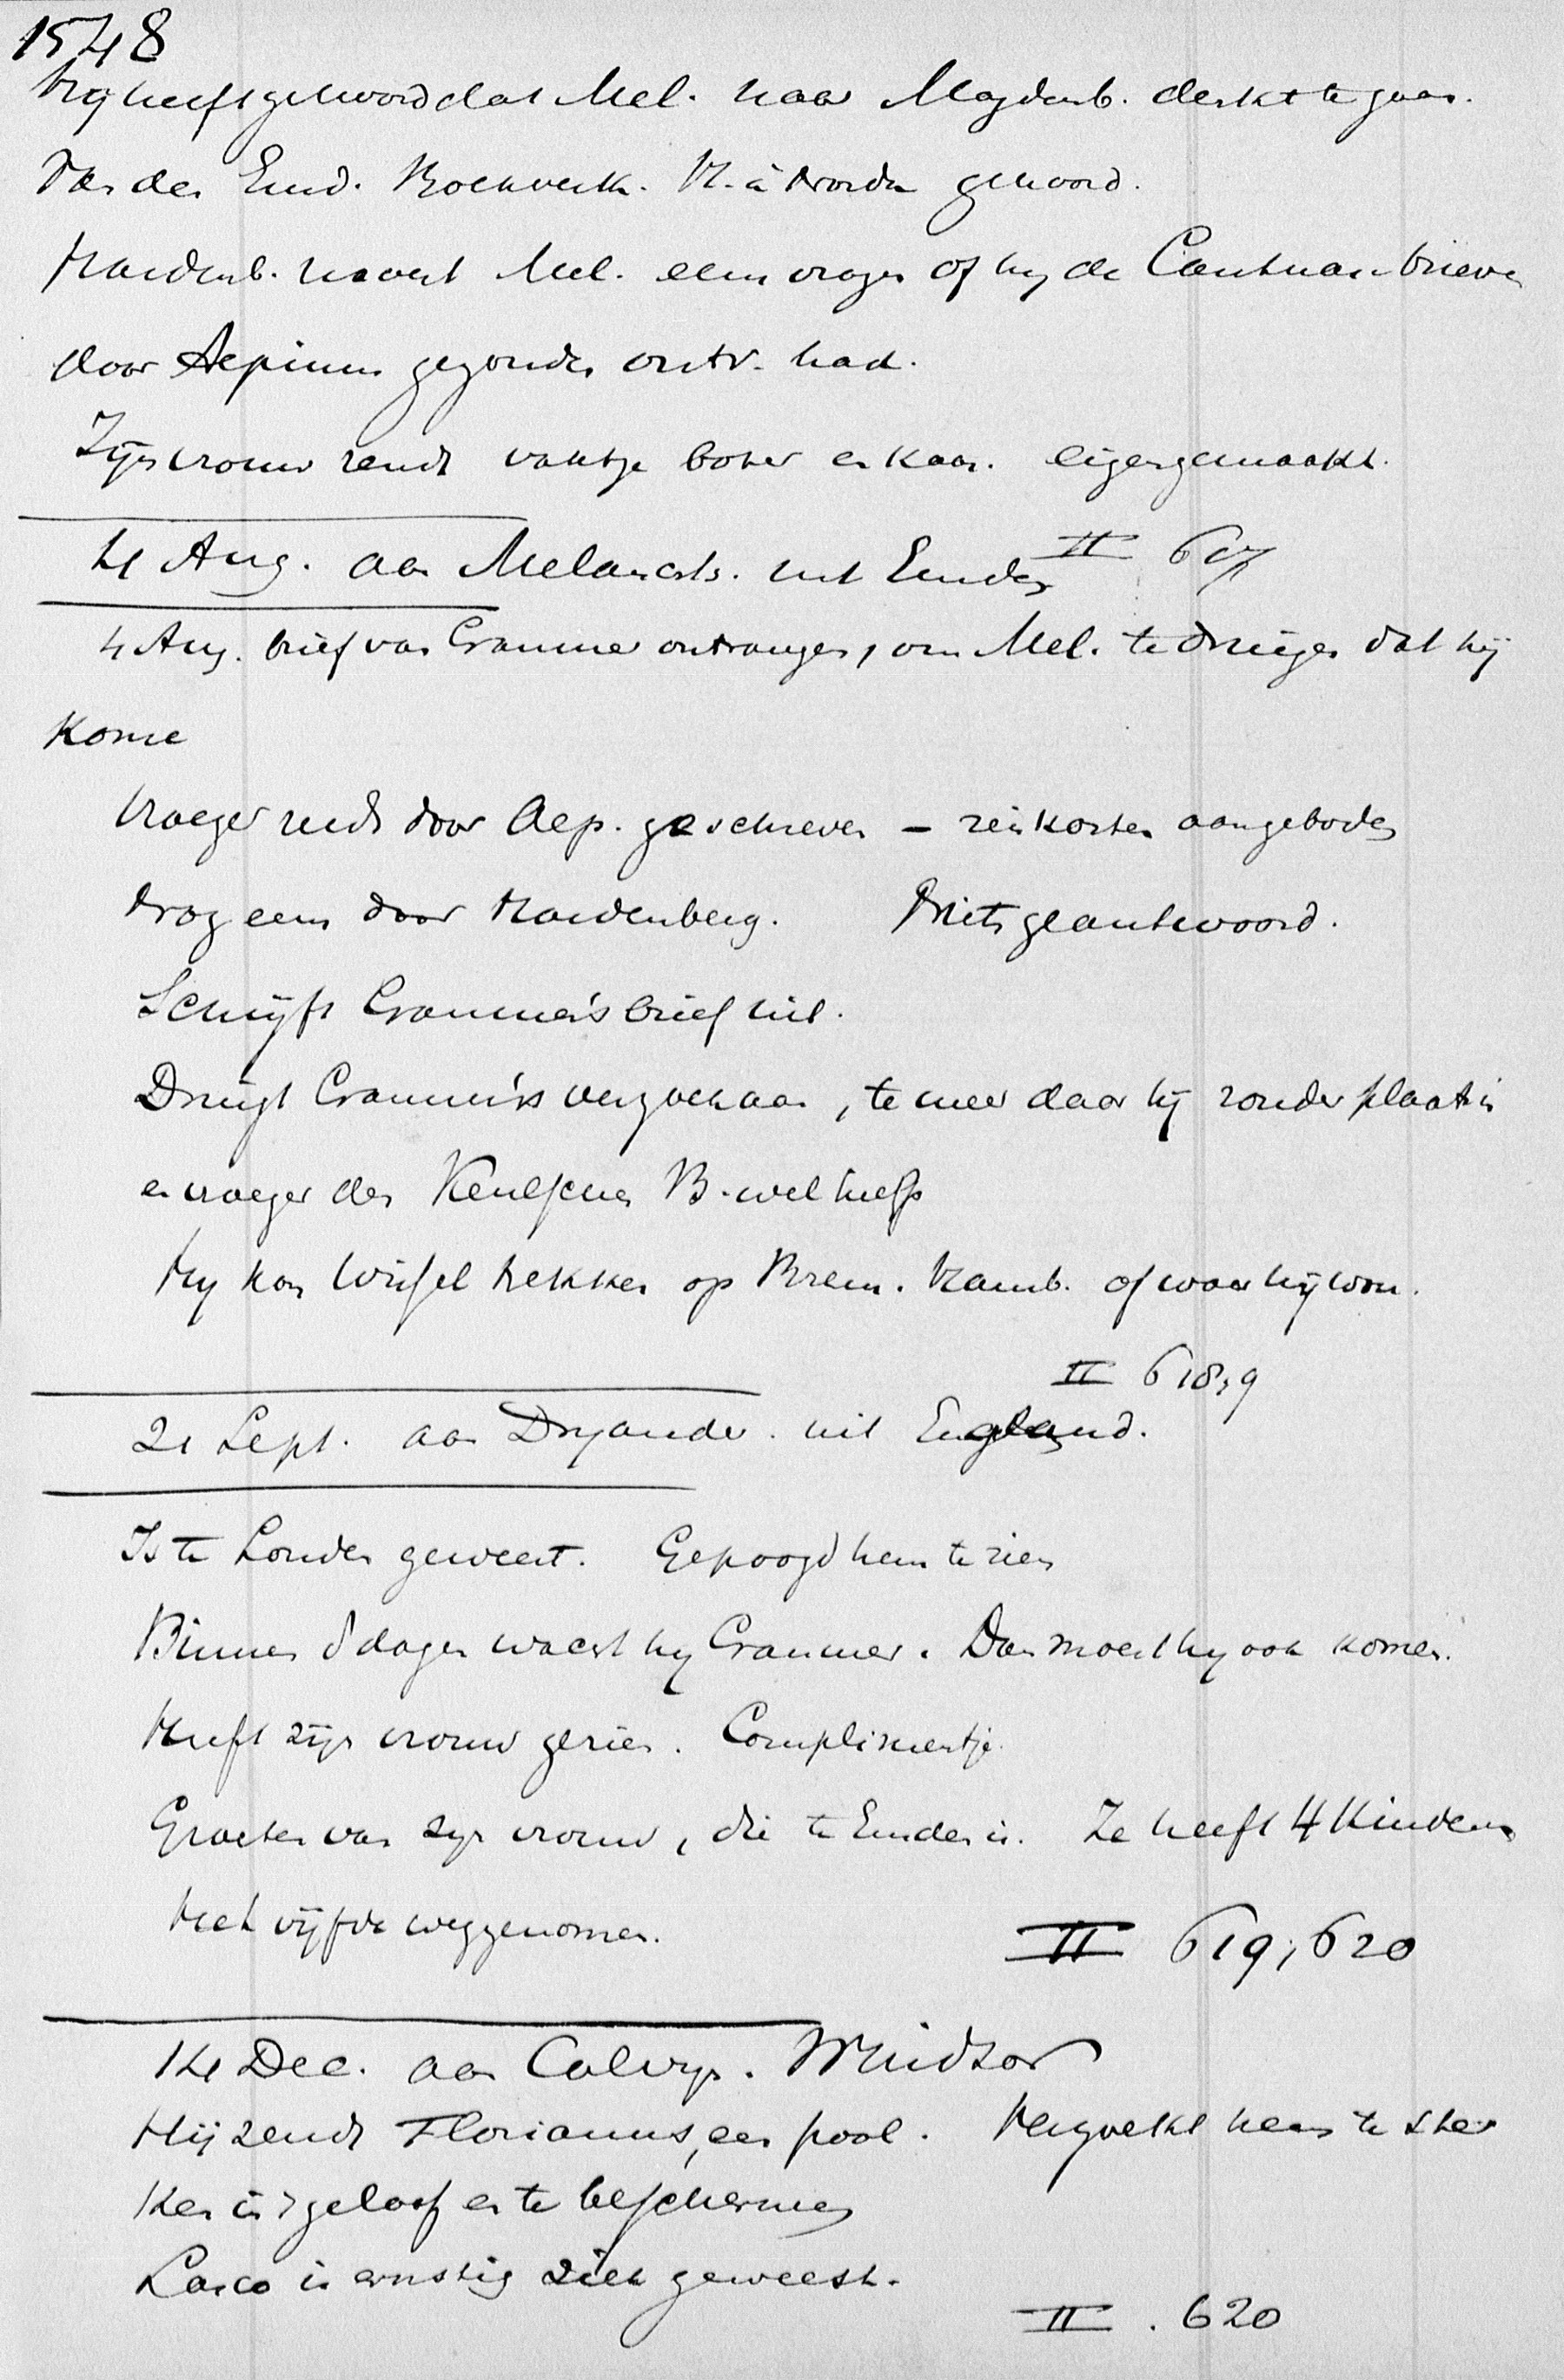 1548
Hij heeft gehoord dat Mel. naar Magdenb. denkt te gaan.
Van den Emd. Boekverk. H. à Norda gehoord.
Hardenb. moest Mel. eens vragen of hij de Cantuar. brieven
door Aepinus gezonden ontv. had.
Zijn vrouw zendt vaatje boter en kaas. eigengemaakt.
II 607
4 Aug. aan Melanch. uit Emden
4 Aug. brief van Cranmer ontvangen, om Mel. te dringen dat hij
kome
Vroeger reeds door Aep. geschreven – reiskosten aangeboden
Nog eens door Hardenberg. Niets geantwoord.
Schrijft Cranmer's brief uit.
Dringt Cranmer's verzoek aan, te meer daar hij zonder plaats is
en vroeger den Keulschen B. wel hielp
Hij kan wissel trekken op Brem. Hamb. of waar hij won.
II 618,9
21 Sept. aan Dryander. uit England.
Is te Londen geweest. Gepoogd hem te zien
Binnen 8 dagen wacht hij Cranmer. Dan moest hij ook komen.
Heeft zijn vrouw gezien. Complimentje.
Groeten van zijn vrouw, die te Emden is. Ze heeft 4 kinderen
Het vijfde weggenomen.
II 619, 620
14 Dec. aan Calvyn. Windsor
Hij zendt Florianus, een pool. Verzoekt hem te ster
ken in 't geloof en te beschermen
Lasco is ernstig ziek geweest.
II. 620